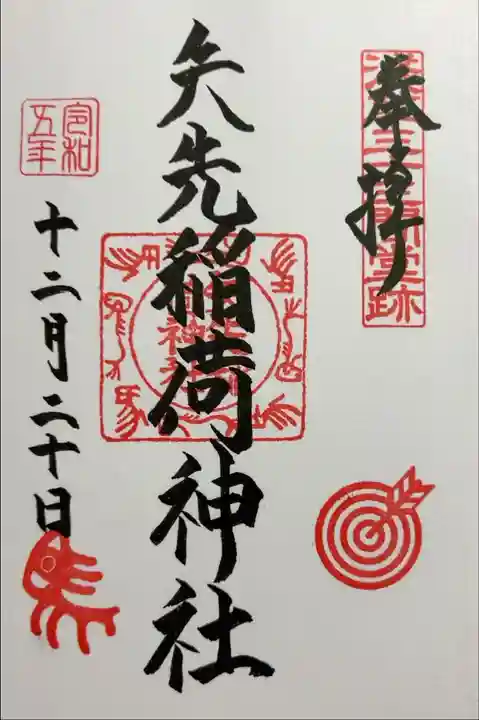 奉拝
浅草三十三間堂跡
矢先稲荷神社
令和
五年
十二月二十日